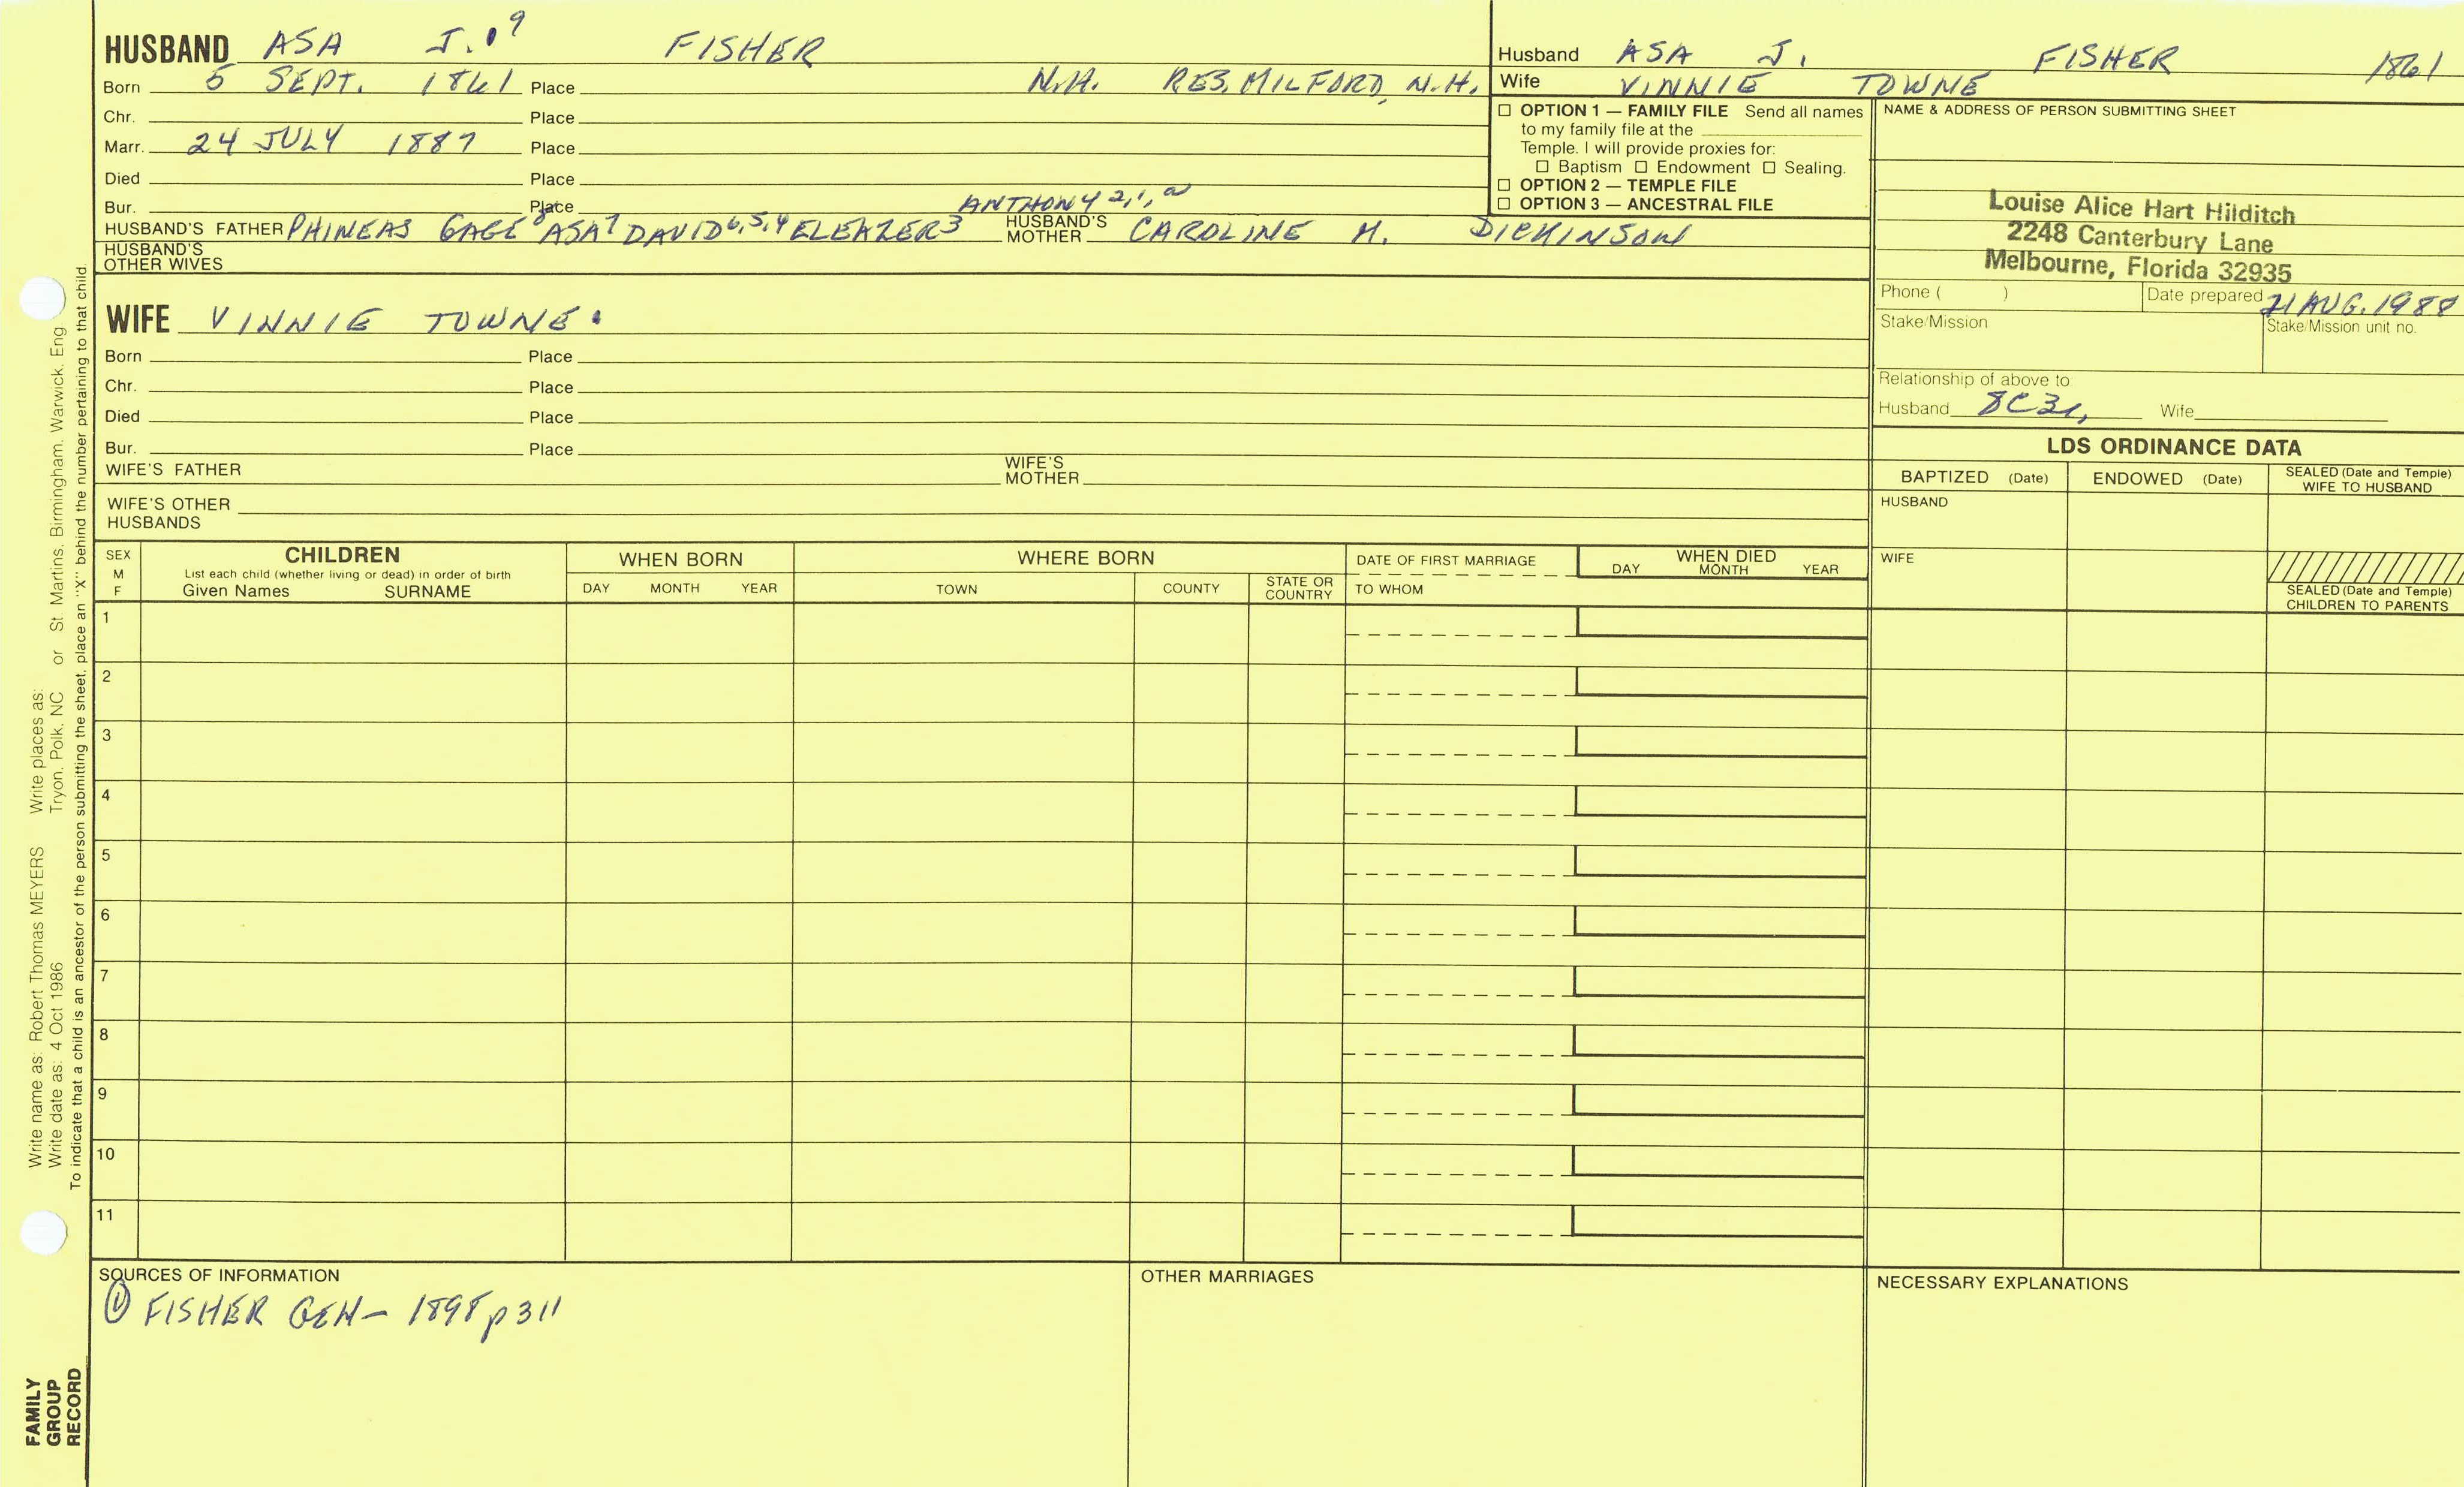 HUSBAND ASA J.9 FISHER
Born 5 SEPT. 1861 Place N.H. RES. MILFORD, N.H.
Chr. Place
Marr. 24 JULY 1887 Place
Died Place
Bur. Place
ANTHONY 2,1,a
HUSBAND'S FATHER PHINEAS GAGE8 ASA7 DAVID6,5,4 ELEAZER3 HUSBAND'S MOTHER CAROLINE M. DICKINSON
HUSBAND'S OTHER WIVES
WIFE VINNIE TOWNE
Born Place
Chr. Place
Died Place
Bur. Place
WIFE'S FATHER WIFE'S MOTHER
WIFE'S OTHER HUSBANDS
Husband ASA J. FISHER 1861
Wife VINNIE TOWNE
☐ OPTION 1 — FAMILY FILE Send all names
to my family file at the
Temple. I will provide proxies for:
☐ Baptism ☐ Endowment ☐ Sealing.
☐ OPTION 2 — TEMPLE FILE
☐ OPTION 3 — ANCESTRAL FILE
NAME & ADDRESS OF PERSON SUBMITTING SHEET
Louise Alice Hart Hilditch
2248 Canterbury Lane
Melbourne, Florida 32935
Phone ( ) Date prepared 21 AUG. 1988
Stake/Mission Stake/Mission unit no.
Relationship of above to
Husband 8C3r, Wife
LDS ORDINANCE DATA
BAPTIZED (Date) ENDOWED (Date) SEALED (Date and Temple) WIFE TO HUSBAND
HUSBAND
WIFE
SEALED (Date and Temple)
CHILDREN TO PARENTS
SEX M F
CHILDREN
List each child (whether living or dead) in order of birth
Given Names SURNAME
WHEN BORN
DAY MONTH YEAR
WHERE BORN
TOWN COUNTY STATE OR COUNTRY
DATE OF FIRST MARRIAGE
TO WHOM
WHEN DIED
DAY MONTH YEAR
1
2
3
4
5
6
7
8
9
10
11
SOURCES OF INFORMATION
① FISHER GEN- 1898 p311
OTHER MARRIAGES
NECESSARY EXPLANATIONS
Write name as: Robert Thomas MEYERS Write places as:
Write date as: 4 Oct 1986 Tryon, Polk, NC or St. Martins, Birmingham, Warwick, Eng
To indicate that a child is an ancestor of the person submitting the sheet, place an "X" behind the number pertaining to that child.
FAMILY
GROUP
RECORD